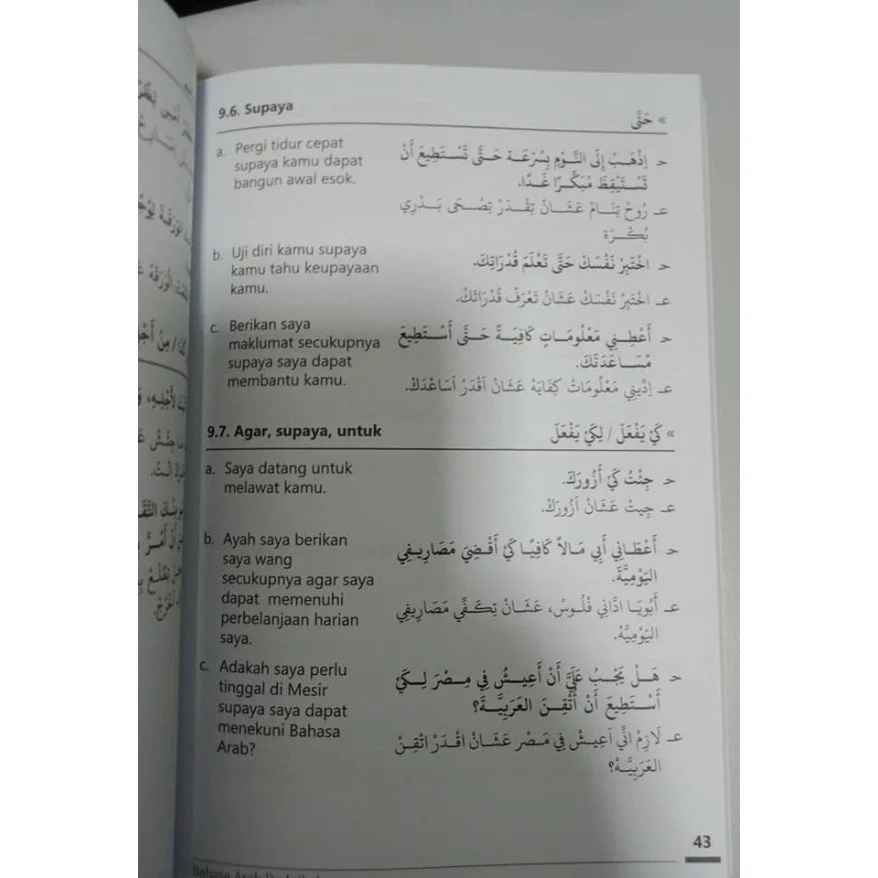 9.6. Supaya
» حَتَّى
a. Pergi tidur cepat
supaya kamu dapat
bangun awal esok.
حـ اِذْهَبْ إِلَى النَّوْمِ بِسُرْعَة حَتَّى تَسْتَطِيعَ أَنْ
تَسْتَيْقِظَ مُبَكِّرًا غَدًا.
عـ رُوحْ تِنَامْ عَشَانْ تِقْدَرْ تِصْحَى بَدْرِي
بُكْرَة
b. Uji diri kamu supaya
kamu tahu keupayaan
kamu.
حـ اخْتَبِرْ نَفْسَكَ حَتَّى تَعْلَمَ قُدْرَاتِكَ.
عـ اخْتَبِرْ نَفْسَكْ عَشَانْ تَعْرَفْ قُدْرَاتَكْ.
c. Berikan saya
maklumat secukupnya
supaya saya dapat
membantu kamu.
حـ أَعْطِنِي مَعْلُومَاتٍ كَافِيَةً حَتَّى أَسْتَطِيعَ
مُسَاعَدَتَكَ.
عـ اِدِّينِي مَعْلُومَاتْ كِفَايَهْ عَشَانْ أَقْدَرْ اَسَاعْدَكْ.
9.7. Agar, supaya, untuk
» كَيْ يَفْعَلَ / لِكَيْ يَفْعَلَ
a. Saya datang untuk
melawat kamu.
حـ جِئْتُ كَيْ أَزُورَكَ.
عـ جِيتْ عَشَانْ اَزُورَكْ.
b. Ayah saya berikan
saya wang
secukupnya agar saya
dapat memenuhi
perbelanjaan harian
saya.
حـ أَعْطَانِي أَبِي مَالاً كَافِيًا كَيْ أَقْضِيَ مَصَارِيفِي
اليَوْمِيَّةَ.
عـ أَبُويَا ادَّانِي فُلُوسْ، عَشَانْ تِكَفِّي مَصَارِيفِي
اليَوْمِيَّهْ.
c. Adakah saya perlu
tinggal di Mesir
supaya saya dapat
menekuni Bahasa
Arab?
حـ هَلْ يَجْبُ عَلَيَّ أَنْ أَعِيشُ فِي مِصْرَ لِكَيْ
أَسْتَطِيعَ أَنْ أُتْقِنَ العَرَبِيَّةَ؟
عـ لَازِمْ انِّي اَعِيشْ فِي مَصْر عَشَانْ اقْدَرْ اتْقِنْ
العَرَبِيَّهْ؟
43
Bahasa Arab